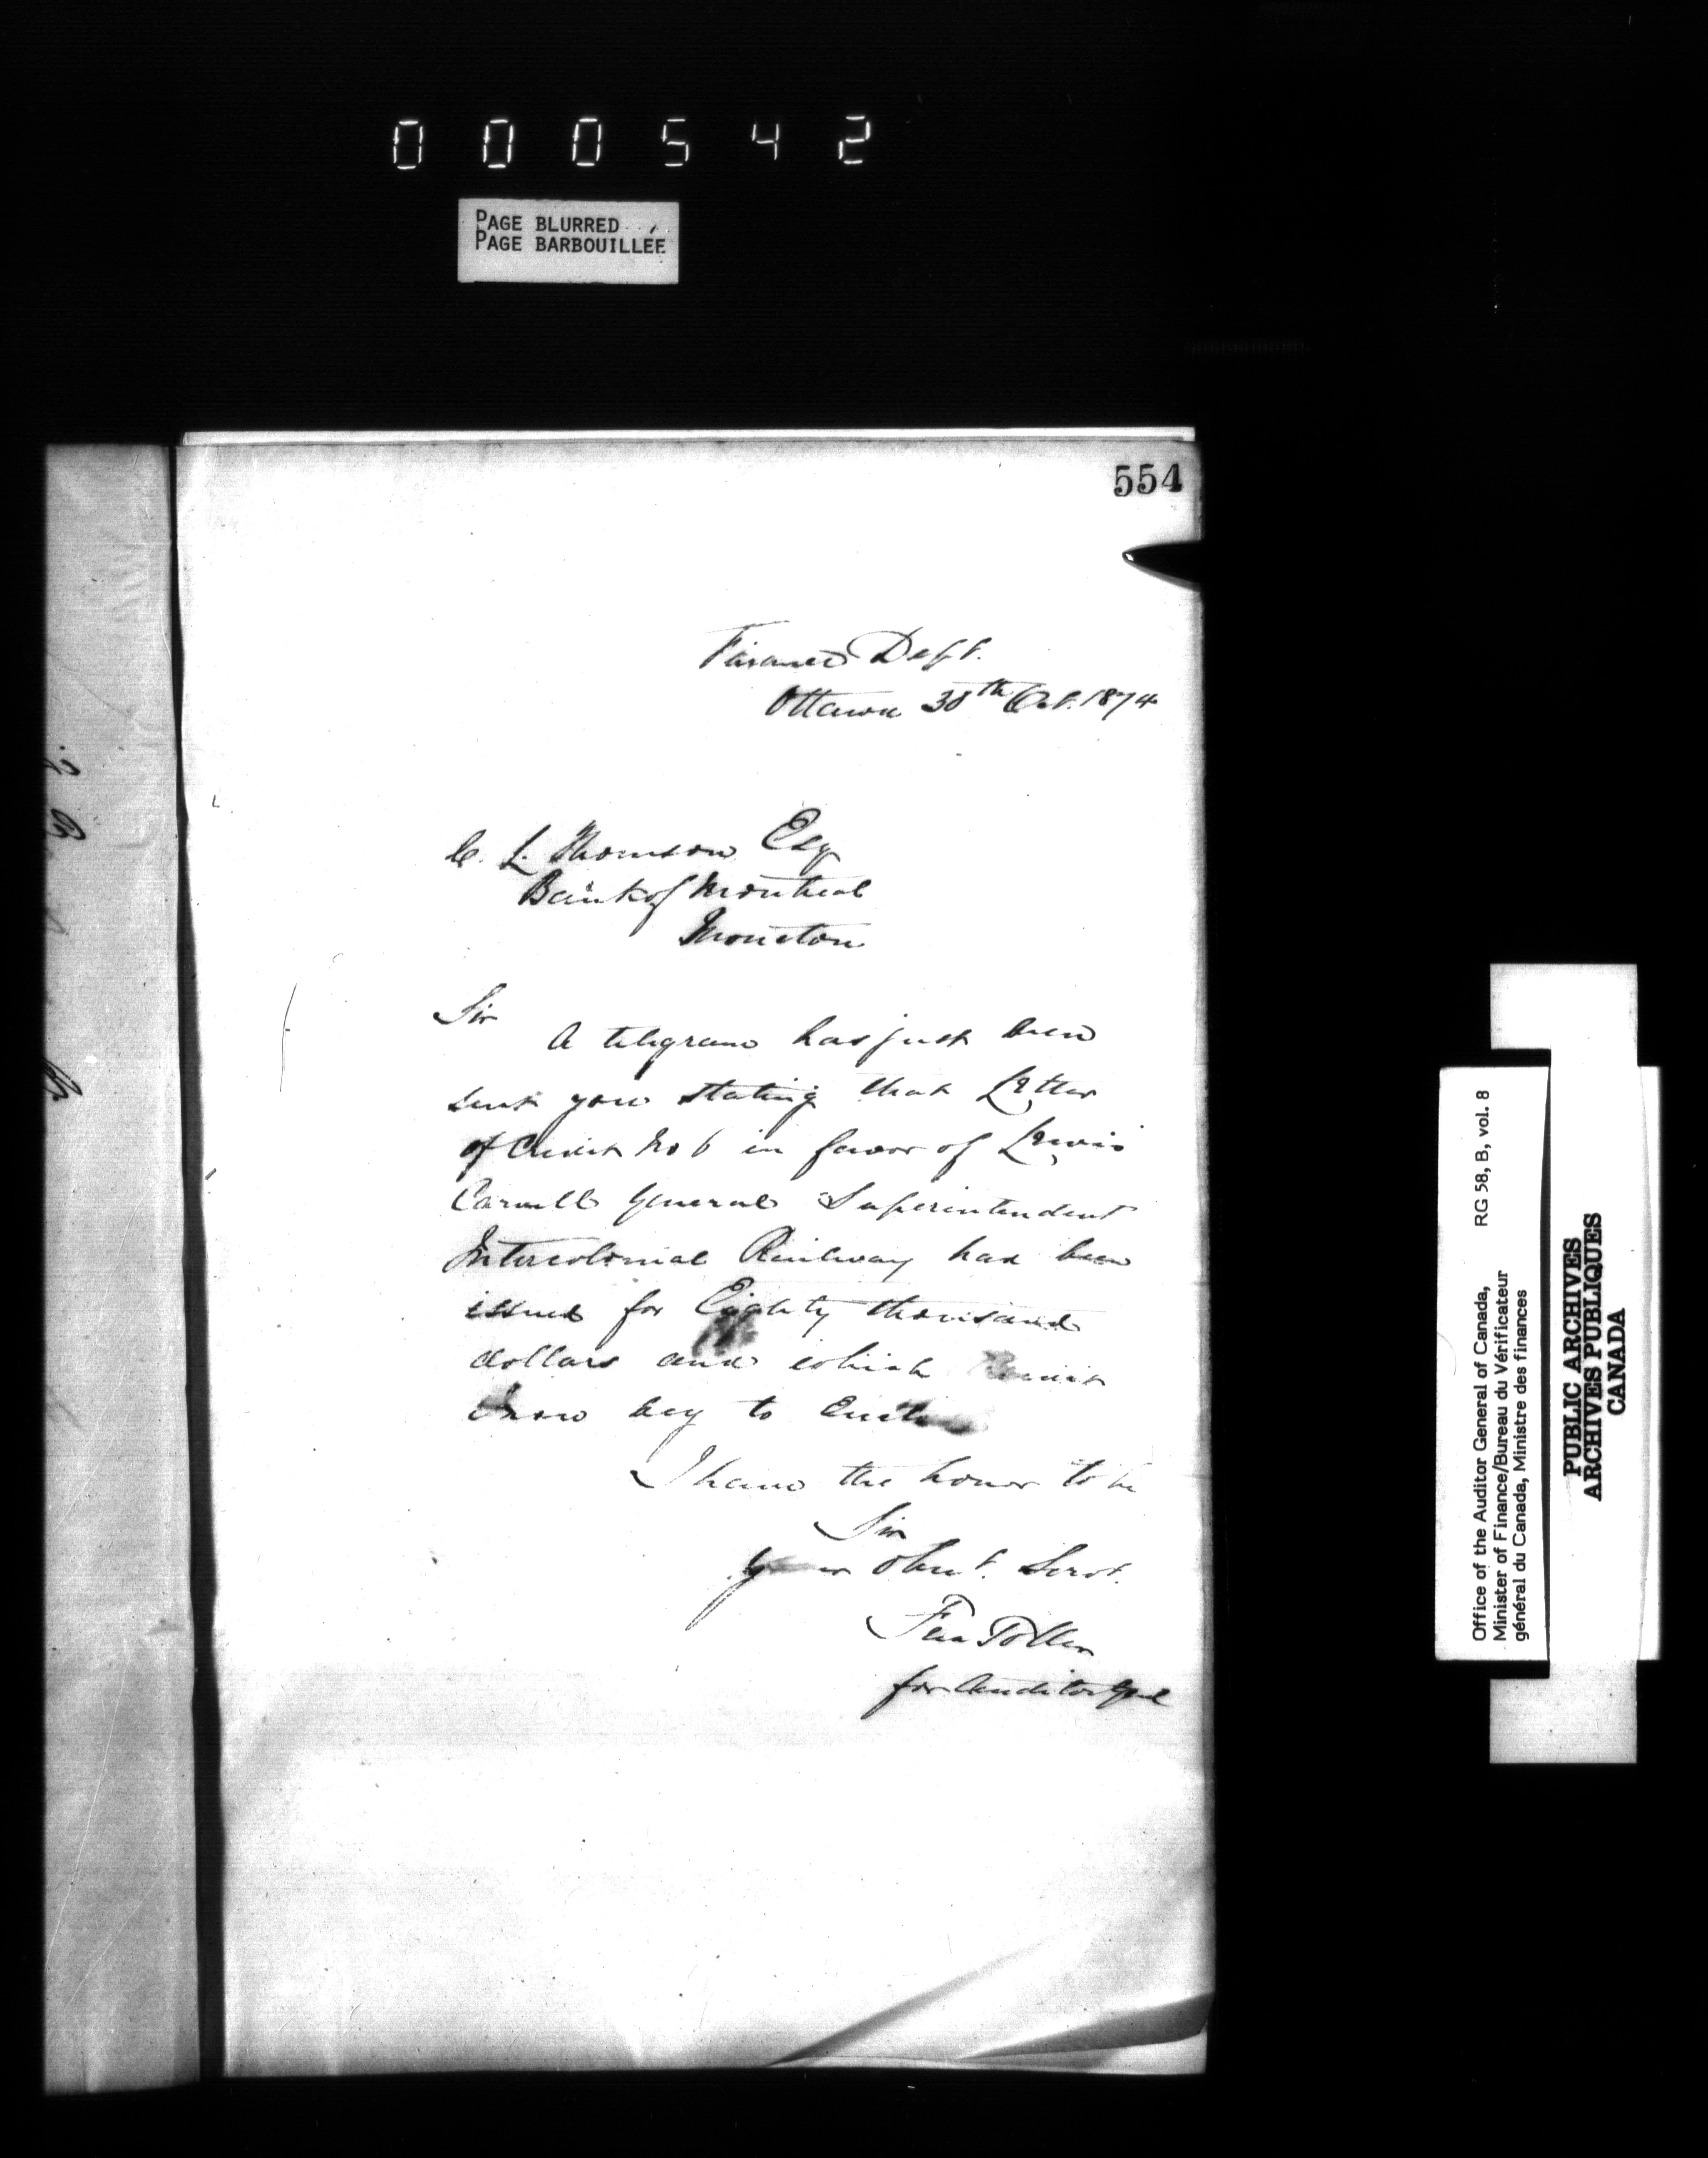 000542
PAGE BLURRED
PAGE BARBOUILLÉE
554
Finance Dept.
Ottawa 30th Oct. 1874
C. L. Thomson Esq
Bank of Montreal
Moncton
Sir
A telegram has just been
sent you stating that Letter
of Credit No 6 in favor of Lewis
Carvell General Superintendent
Intercolonial Railway had been
issued for Eighty thousand
dollars and which Credit
I now beg to Enclose
I have the honor to be
Sir
Your Obent. Servt.
Toller
for Auditor Genl
Office of the Auditor General of Canada, RG 58, B, vol. 8
Minister of Finance/Bureau du Vérificateur
général du Canada, Ministre des finances
PUBLIC ARCHIVES
ARCHIVES PUBLIQUES
CANADA